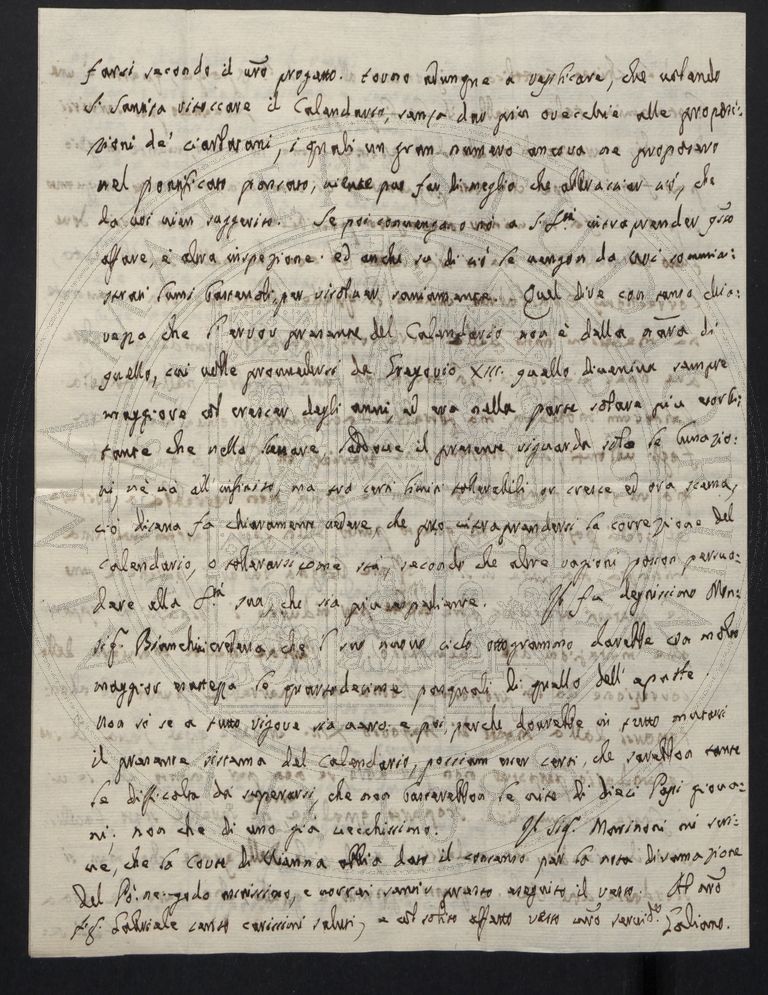 farsi secondo il vrõ progetto. Torno adunque a replicare, che volendo
si Santità ritoccare il Calendario, senza dar più orecchie alle proposi:
zioni de' ciarlatani, i quali in gran numero ancora ne proposero
nel pontificato passato, niente può far di meglio che abbracciar ciò, che
da voi vien suggerito. Se poi convenga o nò a S. Stà intraprender qsto
affare, è altra inspezione: ed anche su di ciò le vengon da voi sommini:
strati lumi bastevoli, per risolver saviamente. Qual dire con tanta chia:
rezza che l'error presente del Calendario non è della nãra di
quello, cui volle provvedersi da Gregorio XIII. quello diveniva sempre
maggiore col crescer degli anni, ed era nella parte solare più esorbi:
tante che nella lunare, laddove il presente riguarda solo le lunazio:
ni, nè và all'infinito, ma tra certi limiti tollerabili or cresce ed ora scema,
ciò dissi fa chiaramente vedere, che può intraprendersi la correzione del
Calendario, o tollerarsi come stà, secondo che altre ragioni posson persua:
dere alla Stà sua, che sia più espediente. Il fu degnissimo Mon:
sigr. Bianchini credeva, che l suo nuovo ciclo ottogrammo darebbe con molto
maggior esattezza le quartedecime pasquali di quello dell'epatte.
Non so se a tutto rigore sia vero: e poi, perchè dovrebbe in tutto mutarsi
il presente sistema del Calendario, possiam esser certi, che sarebbon tante
le difficoltà da superarsi, che non basterebbon le vite di dieci Papi giova:
ni, non che di uno già vecchissimo. Il Sigr. Marinoni mi scri:
ve, che la Corte di Vienna abbia dato il consenso per la nota diramazione
del Pò: ne godo moltissimo, e vorrei sentir presto eseguito il resto. Al vrõ
Sigr. Gabriele tanti carissimi saluti, e col solito affetto resto vrõ servidre Galiano.